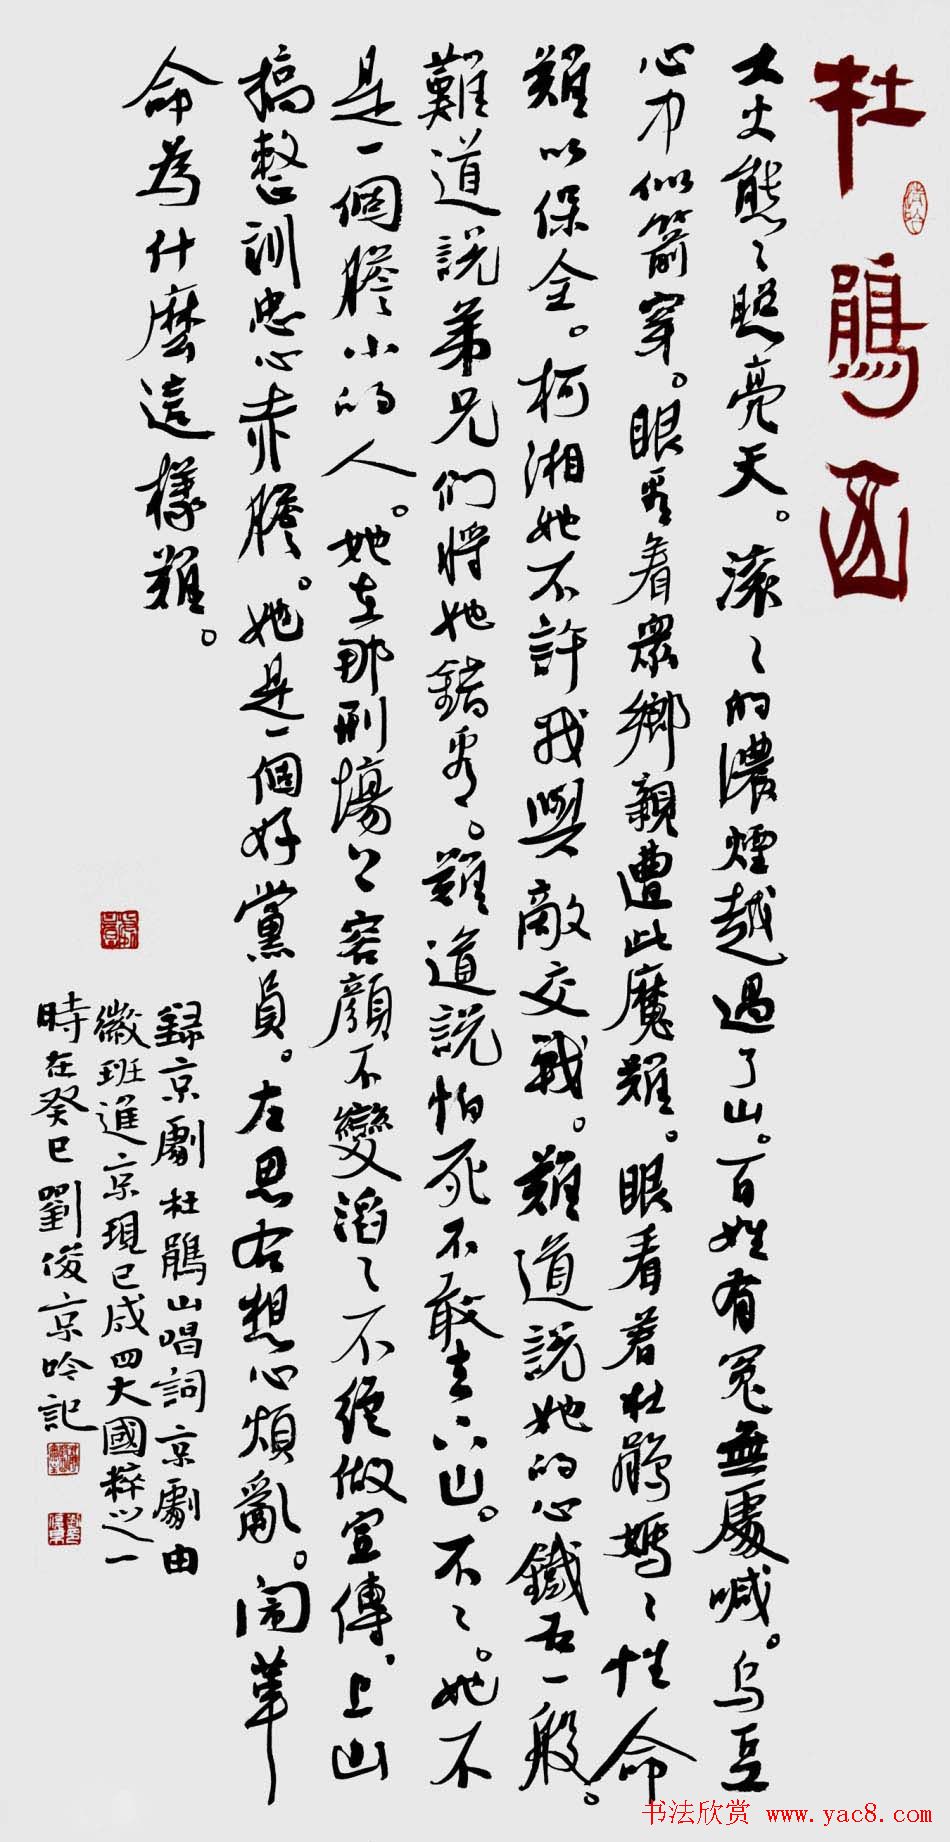 杜鵑山
大火熊〻照亮天。滚〻的濃煙越過了山。百姓有冤無處喊。乌豆
心中似箭穿。眼看着眾鄉親遭此魔難。眼看着杜鵑媽〻性命
難以保全。柯湘她不許我與敵交戰。難道説她的心鐵石一般。
難道説弟兄們將她錯看。難道説怕死不敢去下山。不〻。她不
是一個膽小的人。她在那刑場上容顔不變滔〻不絕做宣傳、上山
搞整訓忠心赤膽。她是一個好黨員。左思右想心煩亂。闹革
命為什麼這樣難。
錄京劇杜鵑山唱詞京劇由
徽班進京現已成四大國粹之一
時在癸巳劉俊京吟記
书法欣赏 www.yac8.com